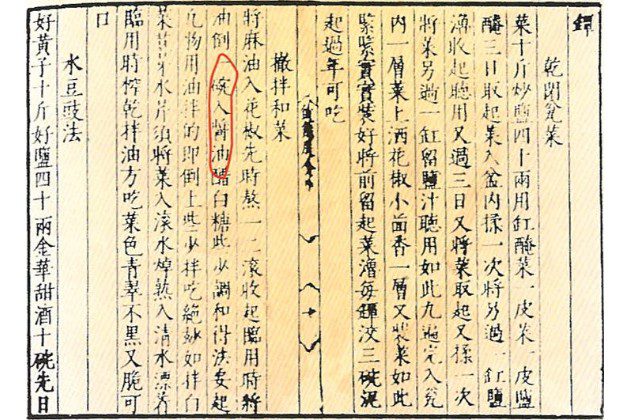 乾閉瓮菜
菜十斤炒鹽四十兩用缸醃菜一皮菜一皮鹽
醃三日取起菜入盆內揉一次將另過一缸鹽
滷收起聽用又過三日又將菜取起又揉一次
將菜另過一缸留鹽汁聽用如此九遍完入瓮
內一層菜上洒花椒小茴香一層又裝菜如此
緊緊實實裝好將前留起菜滷每罈澆三碗泥
起過年可吃
撒拌和菜
將麻油入花椒先時熬一二滾收起臨用時將
油倒一碗入醬油醋白糖些少調和得法安起
凡物用油拌的即倒上些少拌吃絕妙如拌白
菜荳芽水芹須將菜入滾水焯熟入清水漂着
臨用時榨乾拌油方吃菜色青翠不黑又脆可
口
水豆豉法
好黃子十斤好鹽四十兩金華甜酒十碗先日